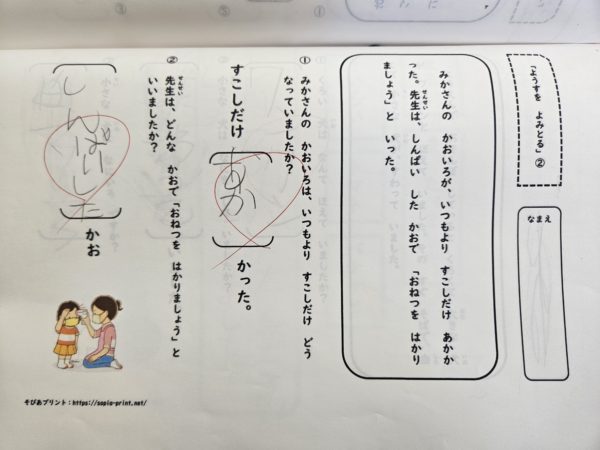 「ようすを　よみとる」②
なまえ
みかさんの　かおいろが、いつもより　すこしだけ　あかか
った。先生は、しんぱい　した　かおで　「おねつを　はかり
ましょう」と　いった。
① みかさんの　かおいろは、いつもより　すこしだけ　どう
なっていましたか？
すこしだけ　［あか］　かった。
② 先生は、どんな　かおで「おねつを　はかりましょう」と
いいましたか？
［しんぱいした］　かお
そぴあプリント：https://sopia-print.net/